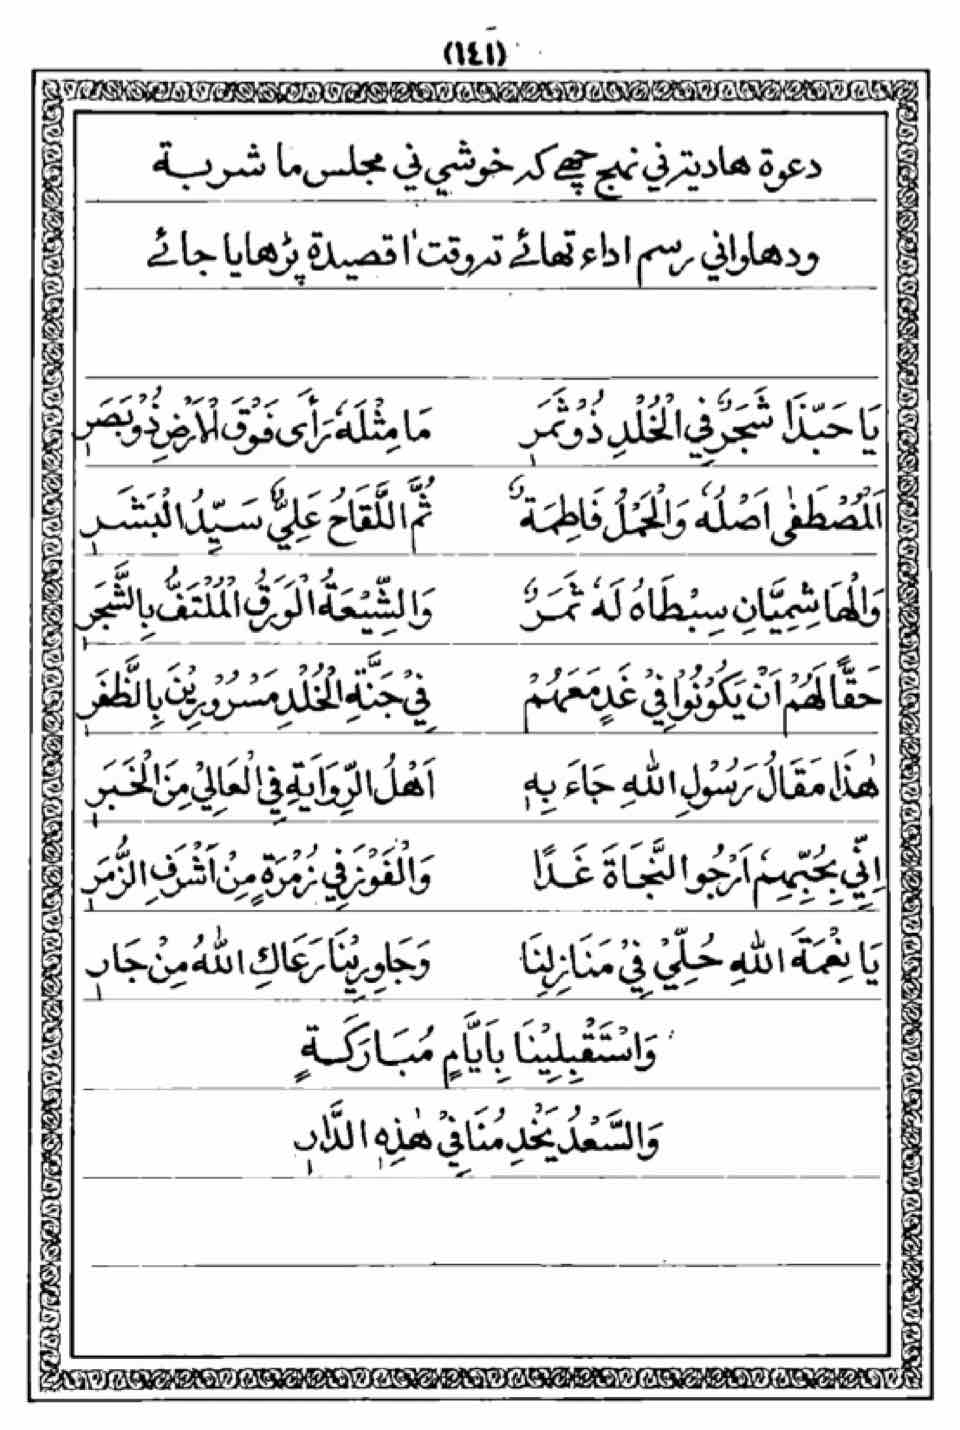 (١٤١)
دعوة هادية ني نهج چھے كہ خوشي ني مجلس ما شربة
ودهاواني رسم اداء تھائے تہ وقت اٰ قصيدة پڑهايا جائے
يَا حَبَّذَا شَجَرٌ فِي الْخُلْدِ ذُوْ ثَمَرٍ مَا مِثْلَهٗ رَأَى فَوْقَ الْاَرْضِ ذُوْ بَصَرٍ
اَلْمُصْطَفٰى اَصْلُهٗ وَالْحَمْلُ فَاطِمَةٌ ثُمَّ اللَّقَاحُ عَلِيٌّ سَيِّدُ الْبَشَرِ
وَالْهَاشِمِيَّانِ سِبْطَاهُ لَهٗ ثَمَرٌ وَالشِّيْعَةُ الْوَرَقُ الْمُلْتَفُّ بِالشَّجَرِ
حَقًّا لَهُمْ اَنْ يَكُوْنُوْا فِيْ غَدٍ مَعَهُمْ فِيْ جَنَّةِ الْخُلْدِ مَسْرُوْرِيْنَ بِالظَّفَرِ
هٰذَا مَقَالُ رَسُوْلِ اللهِ جَاءَ بِهٖ اَهْلُ الرِّوَايَةِ فِي الْعَالِيْ مِنَ الْخَبَرِ
اِنِّيْ بِحُبِّهِمْ اَرْجُو النَّجَاةَ غَدًا وَالْفَوْزَ فِيْ زُمْرَةٍ مِنْ اَشْرَفِ الزُّمَرِ
يَا نِعْمَةَ اللهِ حُلِّيْ فِيْ مَنَازِلِنَا وَجَاوِرِيْنَا رَعَاكِ اللهُ مِنْ جَارِ
وَاسْتَقْبِلِيْنَا بِاَيَّامٍ مُبَارَكَةٍ
وَالسَّعْدُ يَخْدِمُنَا فِيْ هٰذِهِ الدَّارِ